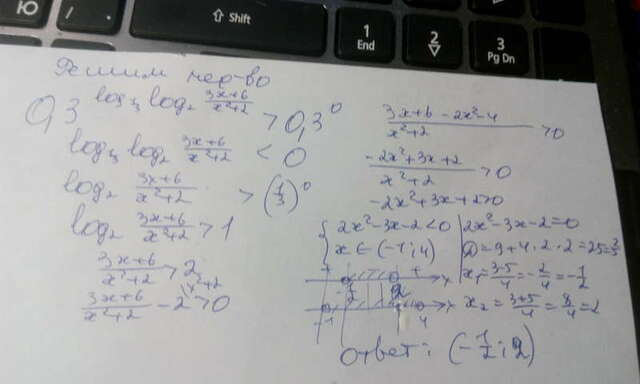 Ю
/ .
⇧ Shift
1
End
2
▽
3
Pg Dn
Решим нер-во
0,3^{log_{1/3} log_2 (3x+6)/(x²+2)} > 0,3^0
log_{1/3} log_2 (3x+6)/(x²+2) < 0
log_2 (3x+6)/(x²+2) > (1/3)^0
log_2 (3x+6)/(x²+2) > 1
(3x+6)/(x²+2) > 2
(3x+6)/(x²+2) - 2^{\x²+2} > 0
(3x+6-2x²-4)/(x²+2) > 0
(-2x²+3x+2)/(x²+2) > 0
-2x²+3x+2>0
{ 2x²-3x-2<0
x ∈ (-1;4)
2x²-3x-2=0
D=9+4·2·2=25=5²
x₁=(3-5)/4=-2/4=-1/2
x₂=(3+5)/4=8/4=2
+ - + x
-1/2 2
-1 4 x
Ответ: (-1/2;2)